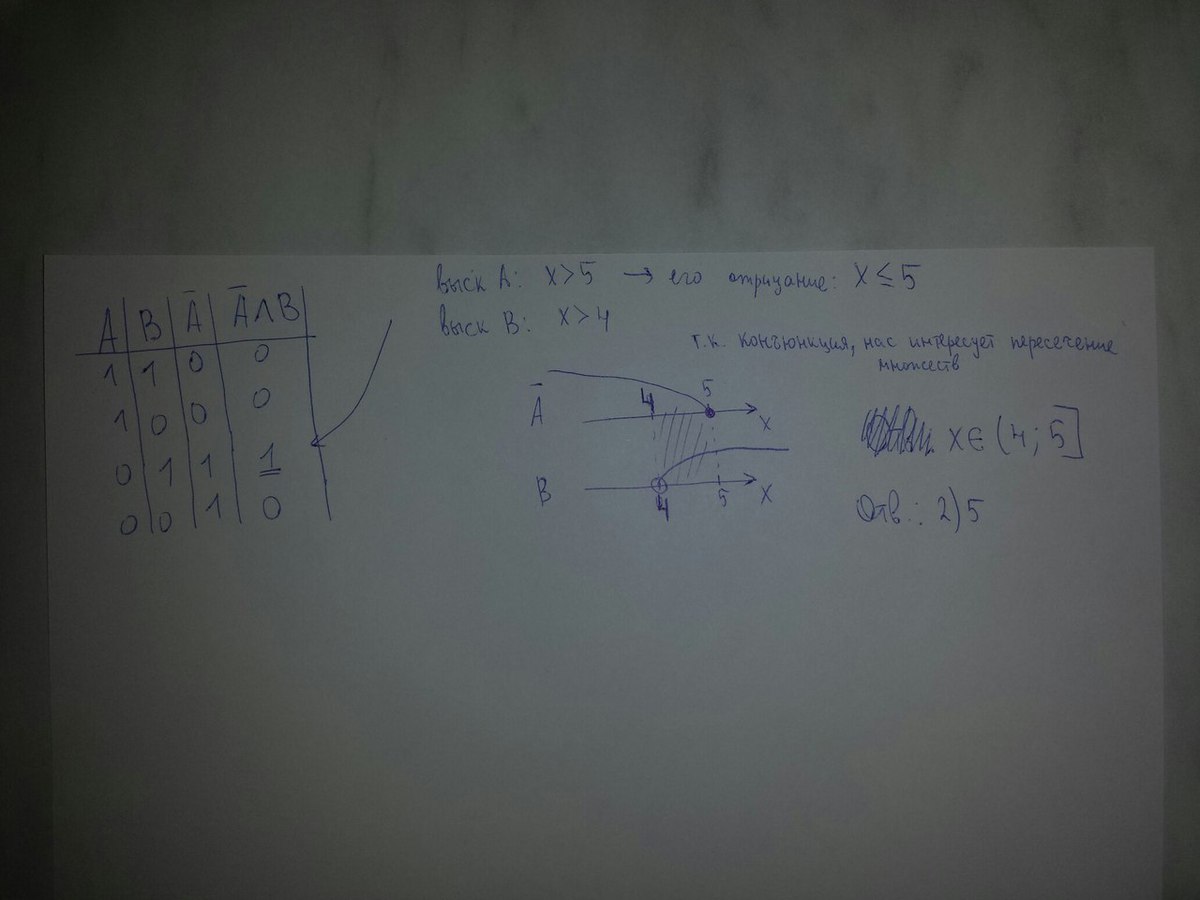 A B A̅ A̅ ∧ B
1 1 0 0
1 0 0 0
0 1 1 1
0 0 1 0
выск A: x>5 → его отрицание: x ≤ 5
выск B: x>4
т.к. конъюнкция, нас интересует пересечение
множеств
A̅ 4 5 x
B 4 5 x
x ∈ (4; 5]
Отв.: 2) 5